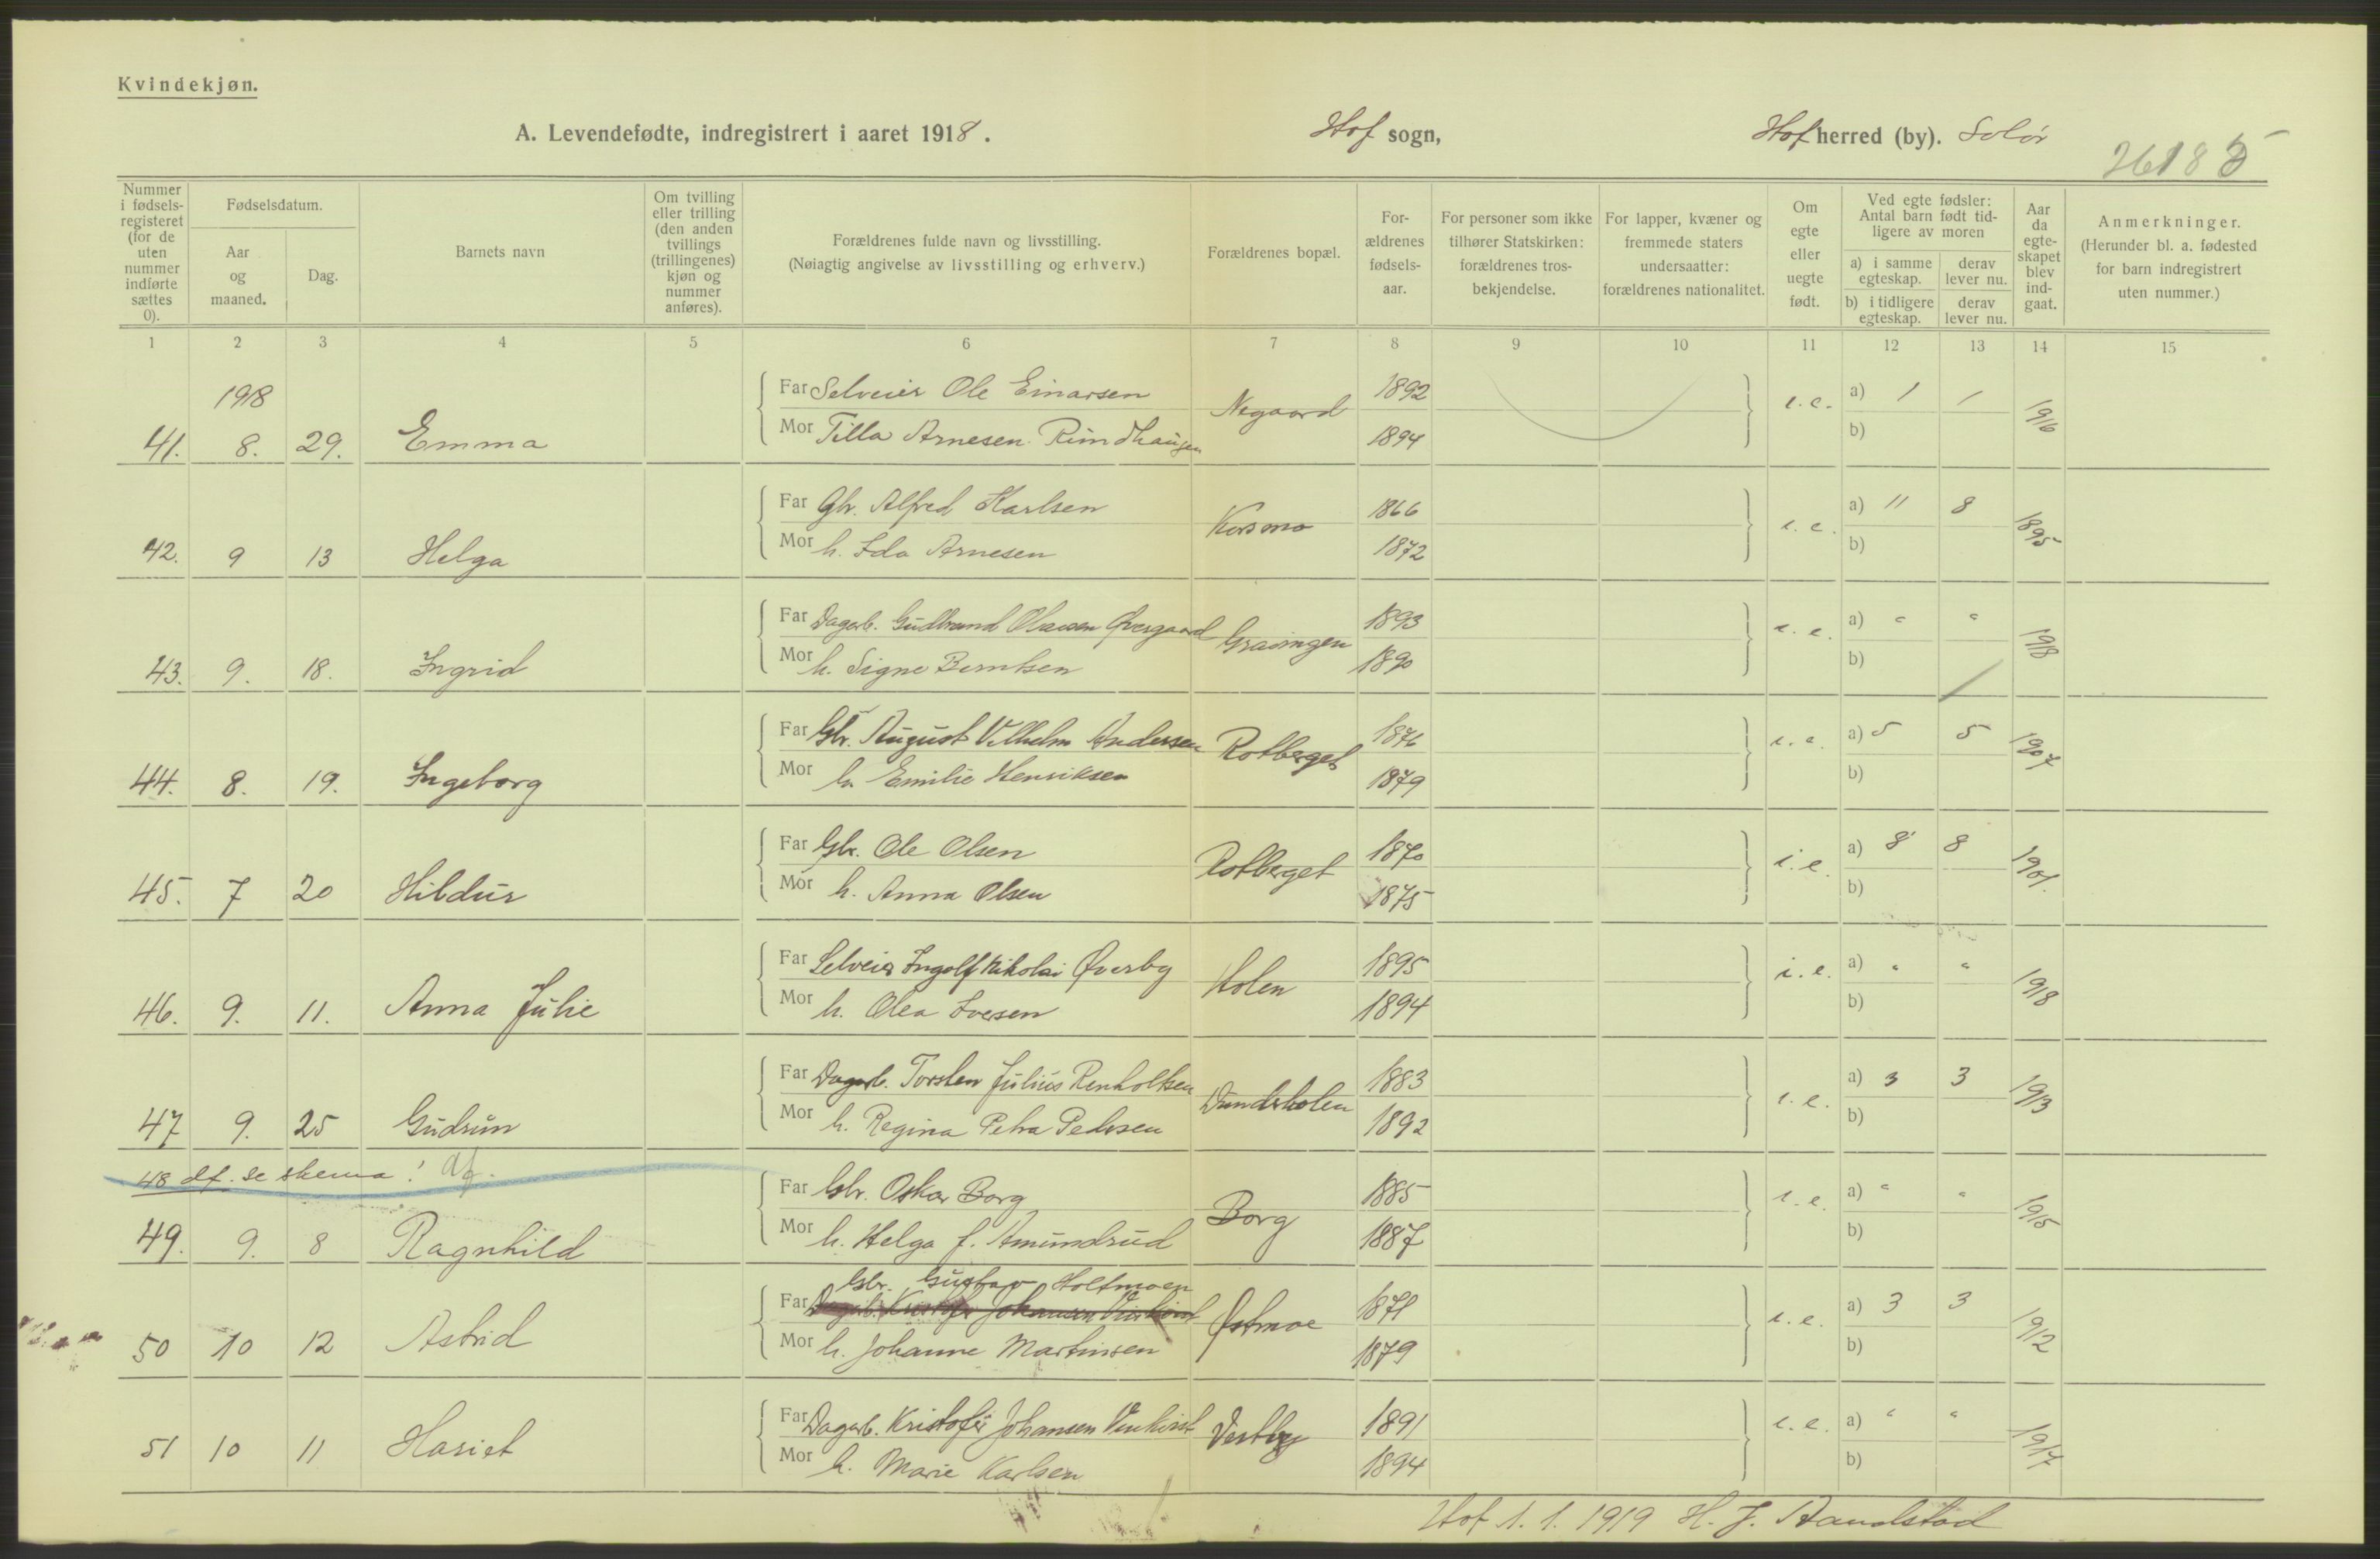 Kvindekjøn.
A. Levendefødte, indregistrert i aaret 1918.
Hof sogn,
Hof herred (by). Solør
Nummer i fødsels-registeret (for de uten nummer indførte sættes 0).
Fødselsdatum.
Aar og maaned.
Dag.
Barnets navn
Om tvilling eller trilling (den anden tvillings (trillingenes) kjøn og nummer anføres).
Forældrenes fulde navn og livsstilling.
(Nøiagtig angivelse av livsstilling og erhverv.)
Forældrenes bopæl.
For-ældrenes fødsels-aar.
For personer som ikke tilhører Statskirken: forældrenes tros-bekjendelse.
For lapper, kvæner og fremmede staters undersaatter: forældrenes nationalitet.
Om egte eller uegte født.
Ved egte fødsler: Antal barn født tid-ligere av moren
a) i samme egteskap.
derav lever nu.
b) i tidligere egteskap.
derav lever nu.
Aar da egte-skapet blev ind-gaat.
Anmerkninger.
(Herunder bl. a. fødested for barn indregistrert uten nummer.)
1 2 3 4 5 6 7 8 9 10 11 12 13 14 15
1918
41. 8. 29. Emma
Far Selveier Ole Einarsen Negaard 1892 i.e. a) 1 1 1916
Mor Tilla Arnesen Rundhaugen 1894 b)
42. 9 13 Helga
Far Gbr. Alfred Karlsen Korsmo 1866 i.e. a) 11 8 1895
Mor h. Ida Arnesen 1872 b)
43. 9. 18. Ingrid
Far Dagarb. Gudbrand Olausen Øvergaard Grasingen 1893 i.e. a) " " 1918
Mor h. Signe Berntsen 1890 b)
44. 8. 19. Ingeborg
Far Gbr. August Vilhelm Andersen Rotberget 1876 i.e. a) 5 5 1907
Mor h. Emilie Henriksen 1879 b)
45. 7 20 Hildur
Far Gbr. Ole Olsen Rotberget 1870 i.e. a) 8 8 1901.
Mor h. Anna Olsen 1875 b)
46. 9. 11. Anna Julie
Far Selveier Ingolf Nikolai Øverby Holen 1895 i.e. a) " " 1918
Mor h. Olea Iversen 1894 b)
47 9. 25 Gudrun
Far Dagarb. Torsten Julius Renholtsen Dunderholen 1883 i.e. a) 3 3 1913
Mor h. Regina Petra Pedersen 1892 b)
48 df. se skema! df.
49. 9. 8 Ragnhild
Far Gbr. Oskar Borg Borg 1885 i.e. a) " " 1915
Mor h. Helga f. Amundrud 1887 b)
50 10 12 Astrid
Gbr. Gustav Holtmoen
Far Dagarb. Kristofer Johansen Vinkvist Østmoe 1871 i.e. a) 3 3 1912
Mor h. Johanne Martinsen 1879 b)
51 10 11 Hariet
Far Dagarb. Kristofer Johansen Vinkvist Vestby 1891 i.e. a) " " 1917
Mor h. Marie Karlsen 1894 b)
Hof 1. 1. 1919 H. J. Sandstad